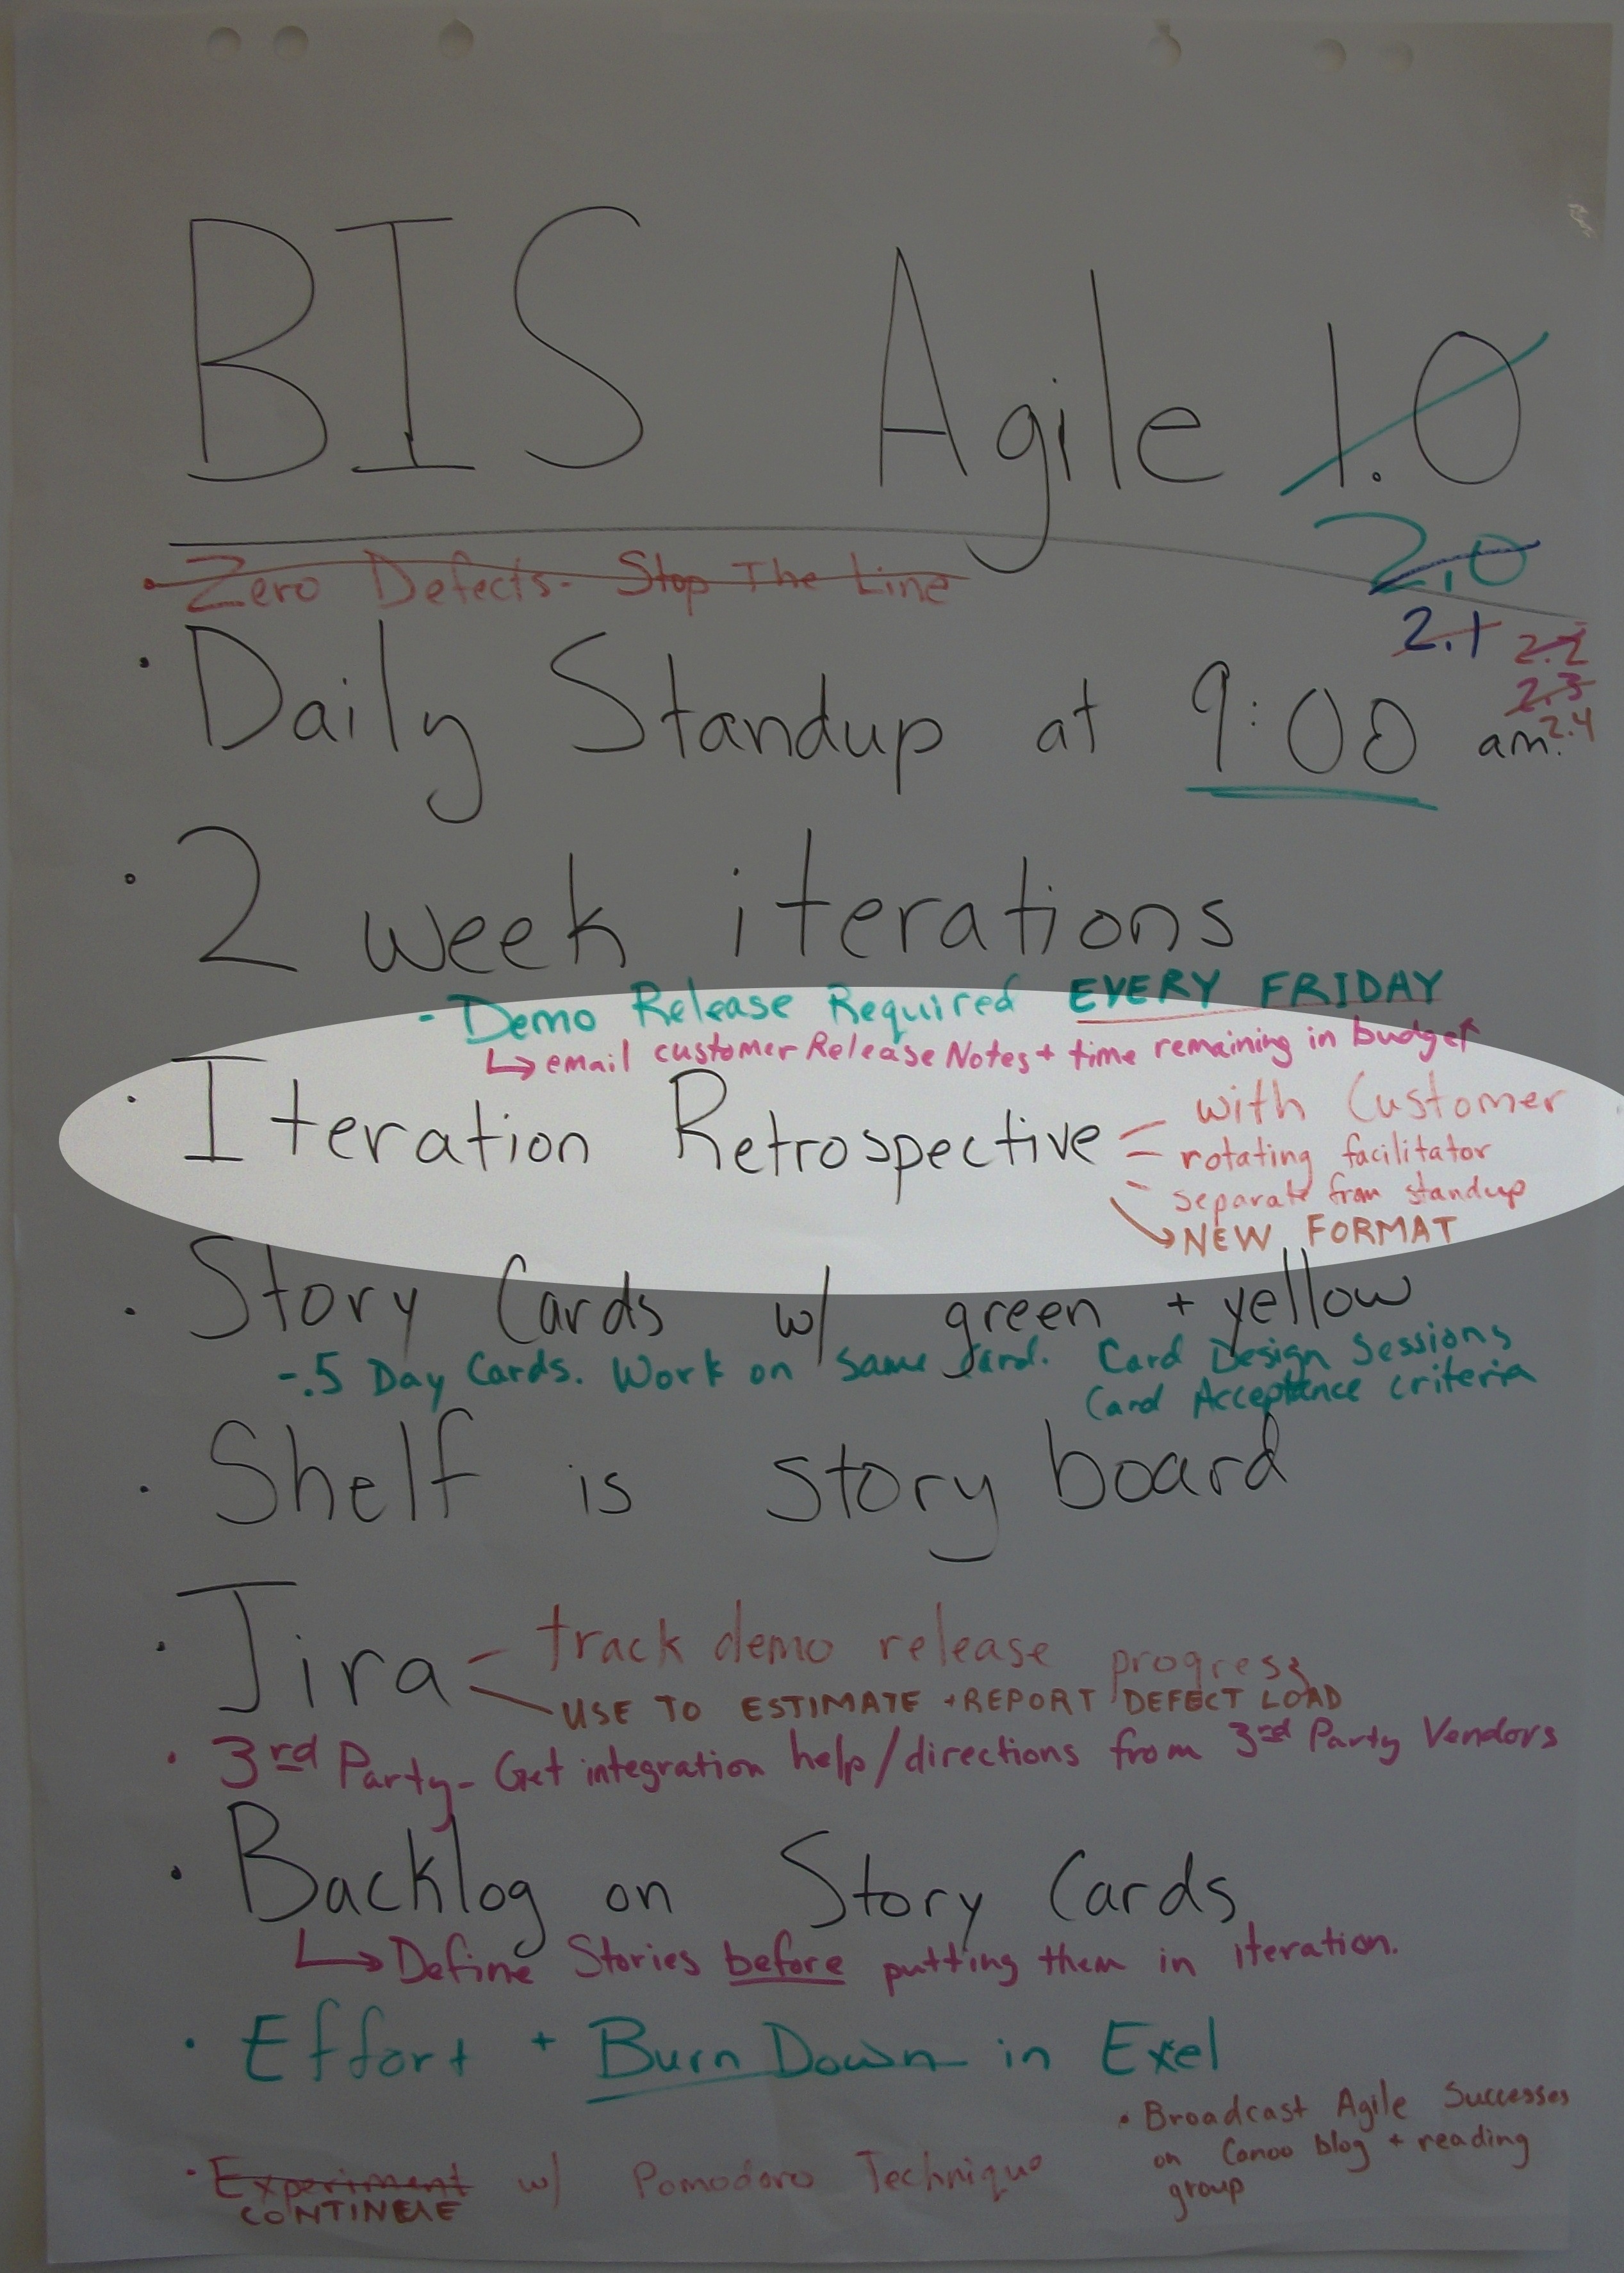 BIS Agile 1.0
2.0
Zero Defects- Stop The Line
2.1 2.2
2.3
2.4
· Daily Standup at 9:00 am.
· 2 week iterations
- Demo Release Required EVERY FRIDAY
↳ email customer Release Notes + time remaining in budget
· Iteration Retrospective - with Customer
- rotating facilitator
- separate from standup
→ NEW FORMAT
· Story Cards w/ green + yellow
-.5 Day Cards. Work on same card. Card Design Sessions
Card Acceptance criteria
· Shelf is story board
· Jira - track demo release progress
USE TO ESTIMATE + REPORT DEFECT LOAD
· 3rd Party - Get integration help/directions from 3rd Party Vendors
· Backlog on Story Cards
↳ Define Stories before putting them in iteration.
· Effort + Burn Down in Exel
· Broadcast Agile Successes
on Canoo blog + reading
group
· Experiment w/ Pomodoro Technique
CONTINUE